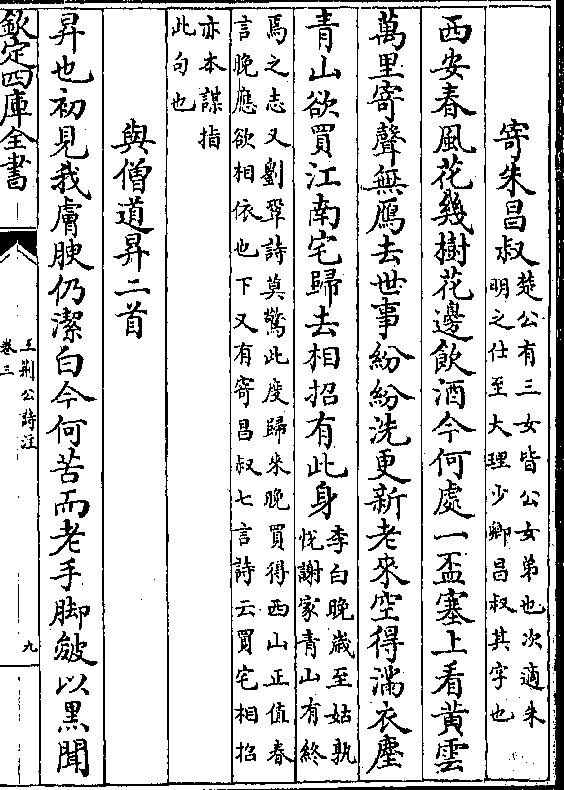 寄朱昌叔楚公有三女皆公女弟也次適朱
明之仕至大理少卿昌叔其字也
西安春風花幾樹花邊飲酒今何處一盃塞上看黃雲
萬里寄聲無鴈去世事紛紛洗更新老來空得滿衣塵
青山欲買江南宅歸去相招有此身李白晚歲至姑孰
悅謝家青山有終
焉之志又劉
詩莫驚此度歸來晚買得西山正值春
言晚應欲相依也下又有寄昌叔七言詩云買宅相招
亦本謀指
此句也
與僧道昇二首
昇也初見我膚腴仍潔白今何苦而老手脚皴以黑聞
欽定四庫全書
王荆公詩注
卷三
九